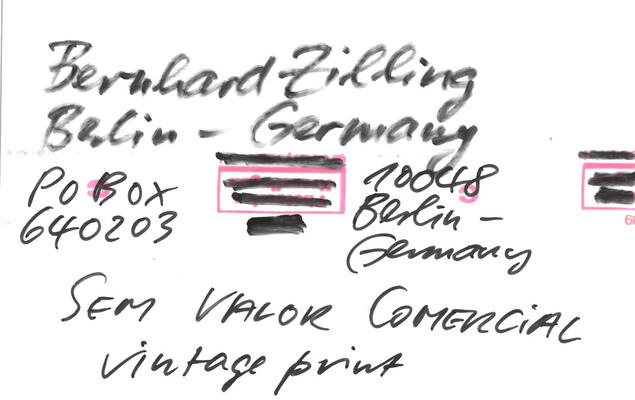 Bernhard Zilling
Berlin - Germany
PO Box
640203
10048
Berlin -
Germany
SEM VALOR COMERCIAL
vintage print